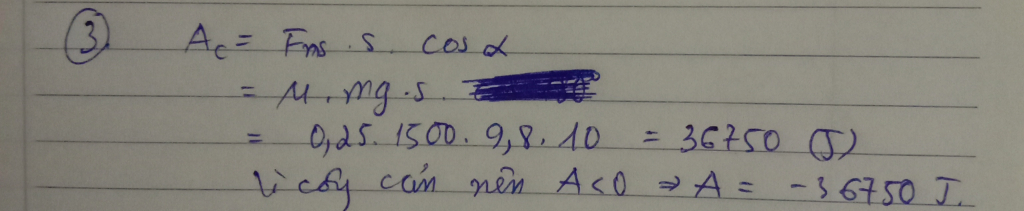 ③ Ac = Fms . s . cos α
= μ . mg . s .
= 0,25 . 1500 . 9,8 . 10 = 36750 (J)
Vì công cản nên A < 0 ⇒ A = -36750 J.